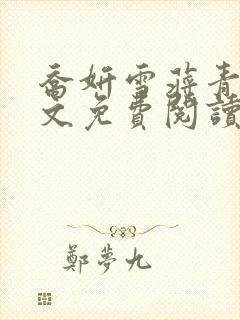 喬妍雪蔣青
文免費閱讀
鄭夢九